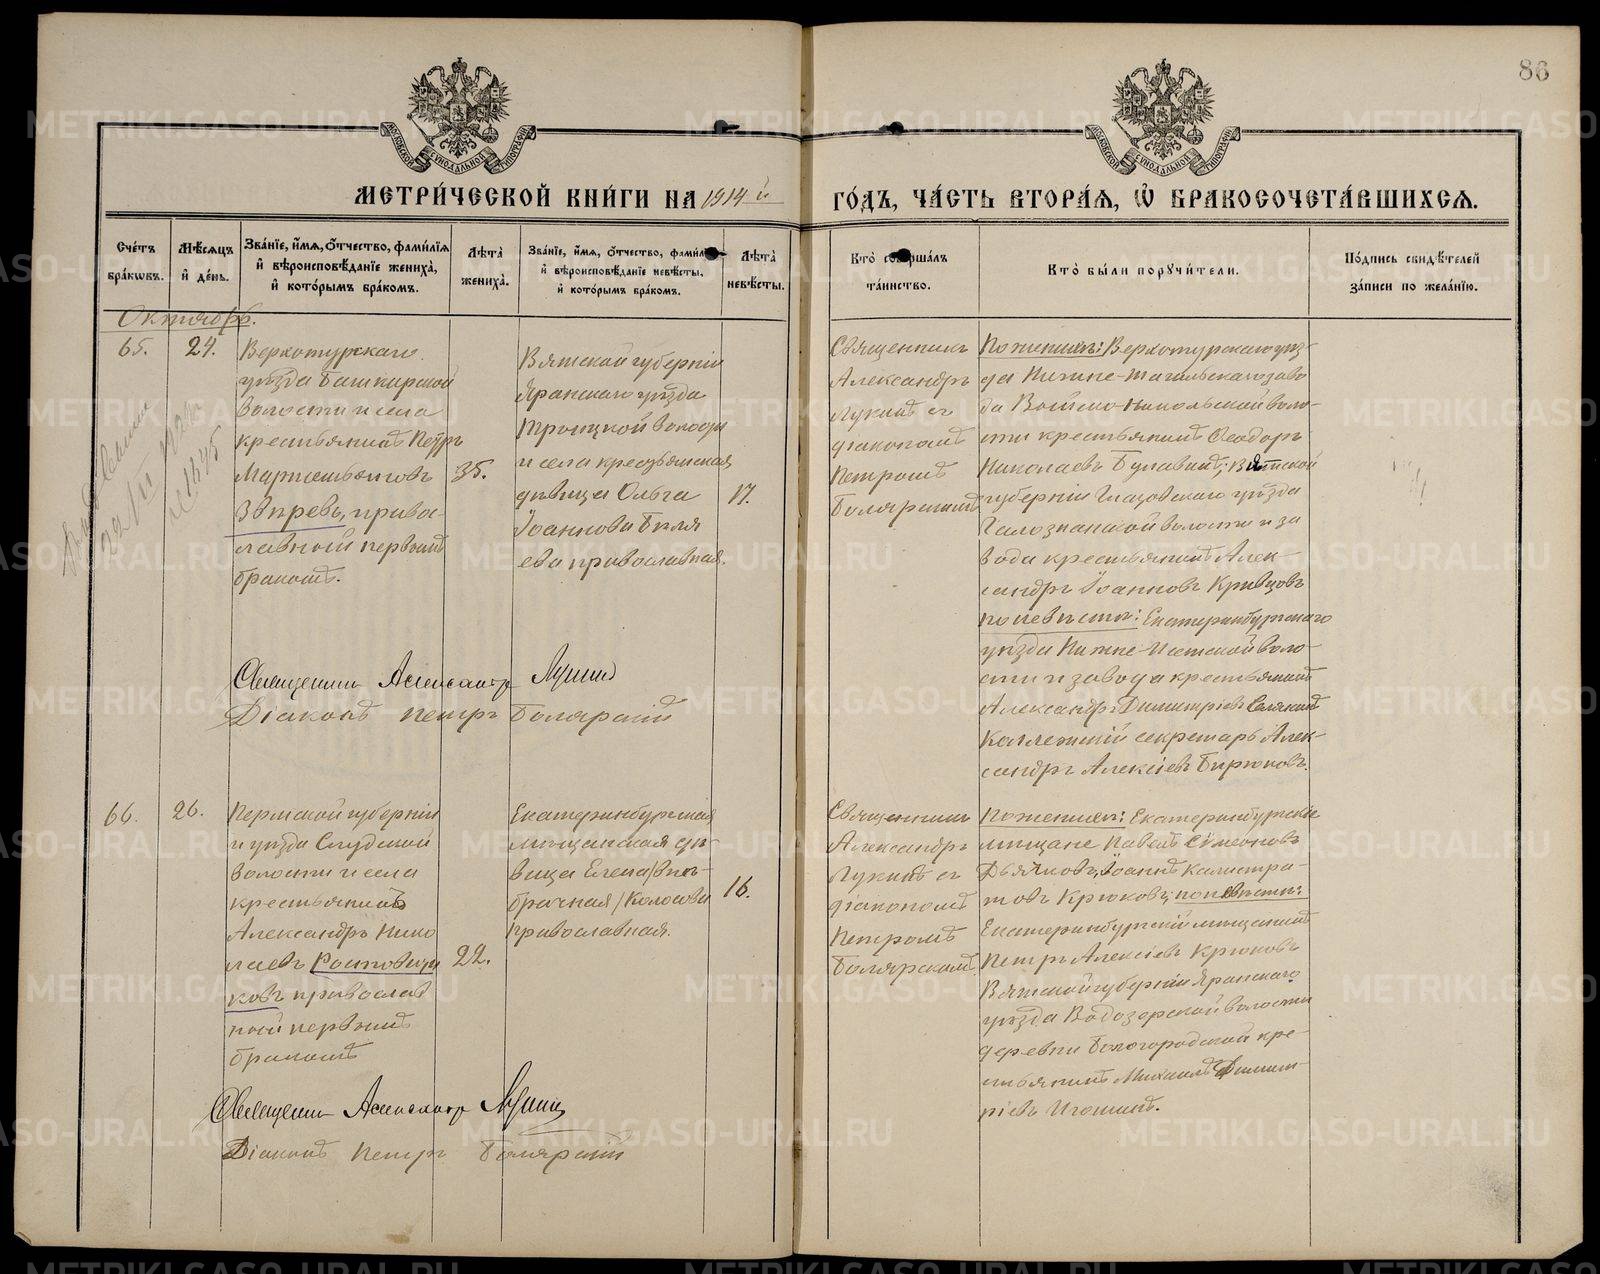 86
МЕТРИ́ЧЕСКОЙ КНИ́ГИ НА 1914 й ГО́ДЪ, ЧА́СТЬ ВТОРА́Я, Ѽ БРАКОСОЧЕТА́ВШИХСЯ.
Сче́тъ бра́кѡвъ.
Мѣ́сяцъ и҆ де́нь.
Зва́нїе, и҆́мя, ѻ҆́тчество, фамилїя и҆ вѣроисповѣ́данїе жениха̀, и҆ кото́рымъ бра́комъ.
Лѣ́та жениха̀.
Зва́нїе, и҆́мя, ѻ҆́тчество, фамилїя и҆ вѣроисповѣ́данїе невѣ́сты, и҆ кото́рымъ бра́комъ.
Лѣ́та невѣ́сты.
Кто̀ соверша́лъ та́инство.
Кто̀ бы́ли порꙋчи́тели.
По́дпись свидѣ́телей за́писи по жела́нїю.
Октябрь.
65.
24.
Верхотурскаго
уѣзда Башкарской
волости и села
крестьянинъ Петръ
Мартемьяновъ
Звѣревъ, правос-
лавный первымъ
бракомъ.
35.
Вятской губерніи
Яранскаго уѣзда
Троицкой волости
и села крестьянская
дѣвица Ольга
Іоаннова Биля
ева православная.
17.
Священникъ
Александръ
Лукинъ съ
діакономъ
Петромъ
Болярскимъ
По женихѣ: Верхотурскаго уѣз-
да Нижне-Тагильскаго заво
да Воиско-Никольской воло-
сти крестьянинъ Ѳеодоръ
Николаевъ Булавинъ; Вятской
губерніи Глазовскаго уѣзда
волости и за
вода крестьянинъ Алек-
сандръ Іоанновъ Кривцовъ
по невѣстѣ: Екатеринбургскаго
уѣзда Нижне-Исетской воло-
сти и завода крестьянинъ
Александръ Димитріевъ
Коллежскій секретарь Алек-
сандръ Алексіевъ Бирюковъ.
Священникъ Александръ Лукинъ
Діаконъ Петръ Болярскій
66.
26.
Пермской губерніи
и уѣзда Слудской
волости и села
крестьянинъ
Александръ Нико
лаевъ Ростовщи
ковъ православ
ный первымъ
бракомъ
22.
Екатеринбургская
мѣщанская дѣ-
вица Елена /внѣ-
брачная/ Колосова
православная.
16.
Священникъ
Александръ
Лукинъ съ
діакономъ
Петромъ
Болярскимъ.
По женихѣ: Екатеринбургскіе
мѣщане Павелъ Симеоновъ
Дьячковъ, Іоаннъ Калистра-
товъ Крюковъ; по невѣстѣ:
Екатеринбургскій мѣщанинъ
Петръ Алексіевъ Крюковъ
Вятской губерніи Яранскаго
уѣзда Водозерской волости
деревни Богогородской кре-
стьянинъ Михаилъ Димит-
ріевъ Игошинъ.
Священникъ Александръ Лукинъ
Діаконъ Петръ Болярскій
METRIKI.GASO-URAL.RU